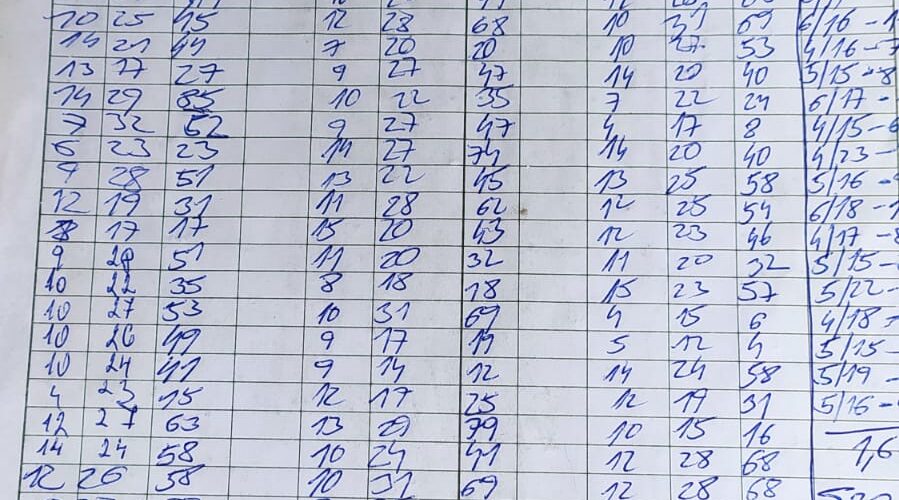 10 25 45 12 28 68 10 31 69 6/16 -
14 21 44 7 20 20 10 27 53 4/16 -
13 17 27 9 27 47 14 20 40 5/15 -8
14 29 85 10 22 35 7 22 24 6/17 -
7 32 52 9 27 47 4 17 8 4/15 -6
6 23 23 14 27 74 14 20 40 4/23 -
9 28 51 13 22 45 13 25 58 5/16 -
12 19 31 11 28 62 12 25 54 6/18 -
8 17 17 15 20 43 12 23 46 4/17 -8
9 28 51 11 20 32 11 20 32 5/15 -
10 22 35 8 18 18 15 23 57 5/22 -
10 27 53 10 31 69 4 15 6 4/18 -
10 26 49 9 17 19 5 12 4 5/15 -
10 24 41 9 14 12 14 24 58 5/19 -
4 23 15 12 17 25 12 19 31 5/16 -
12 27 63 13 29 79 10 15 16
14 24 58 10 24 41 12 28 68 1,6
12 26 58 10 31 69 12 28 68